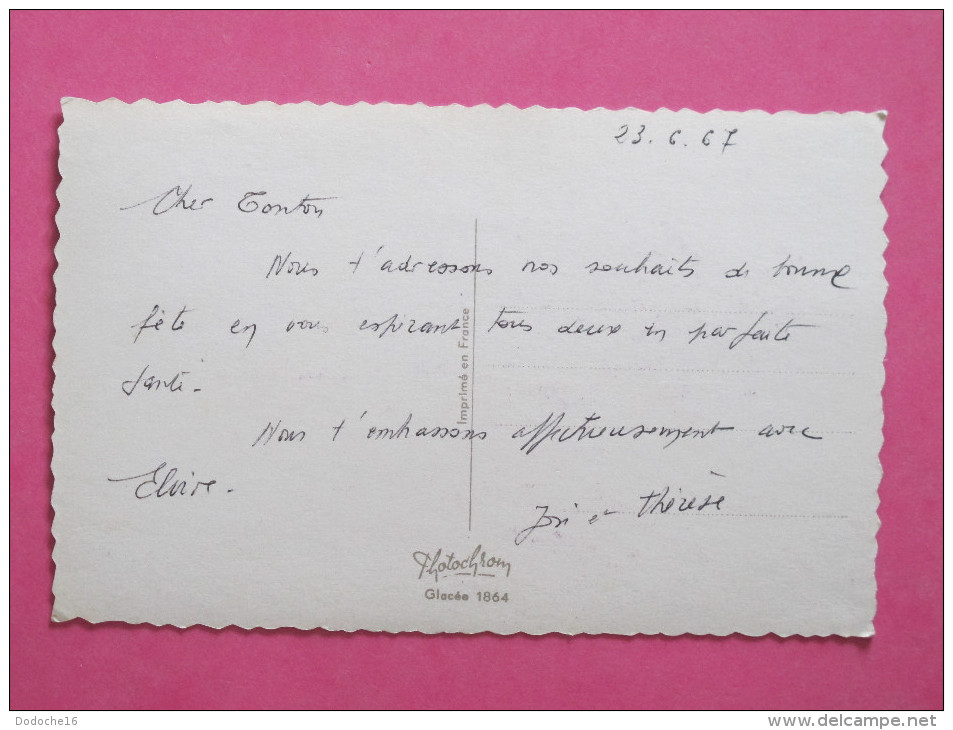 23.6.67
Cher Tonton
Nous t'adressons nos souhaits de bonne
fête en vous espérant tous deux en parfaite
santé.
Nous t'embrassons affectueusement avec
Elvire.
et Thérèse
Imprimé en France
Photochrom
Glacée 1864
Dodoche16
www.delcampe.net